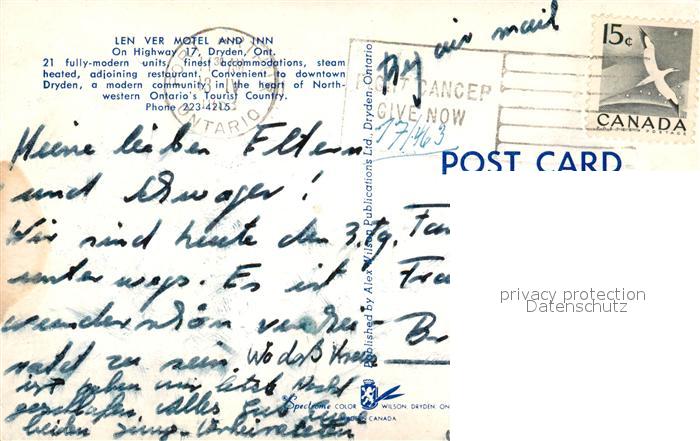 LEN VER MOTEL AND INN
On Highway 17, Dryden, Ont.
21 fully-modern units, finest accommodations, steam
heated, adjoining restaurant. Convenient to downtown
Dryden, a modern community in the heart of North-
western Ontario's Tourist Country.
Phone 223-4215
By air mail
15c
CANADA
POSTES POSTAGE
CANCER
GIVE NOW
ONTARIO
17/463
POST CARD
Meine lieben Eltern
und Schwager!
Wir sind heute den 3. Tg.
unterwegs. Es ist
wunderschön verhei-
ratet zu sein. Wo das Kreuz
ist haben wir letzte Nacht
geschlafen. Alles Gute
beiden jung Verheirateten
Fam
Frau
Published by Alex Wilson Publications Ltd., Dryden, Ontario
privacy protection
Datenschutz
Spectrome COLOR
WILSON, DRYDEN, ON
CANADA